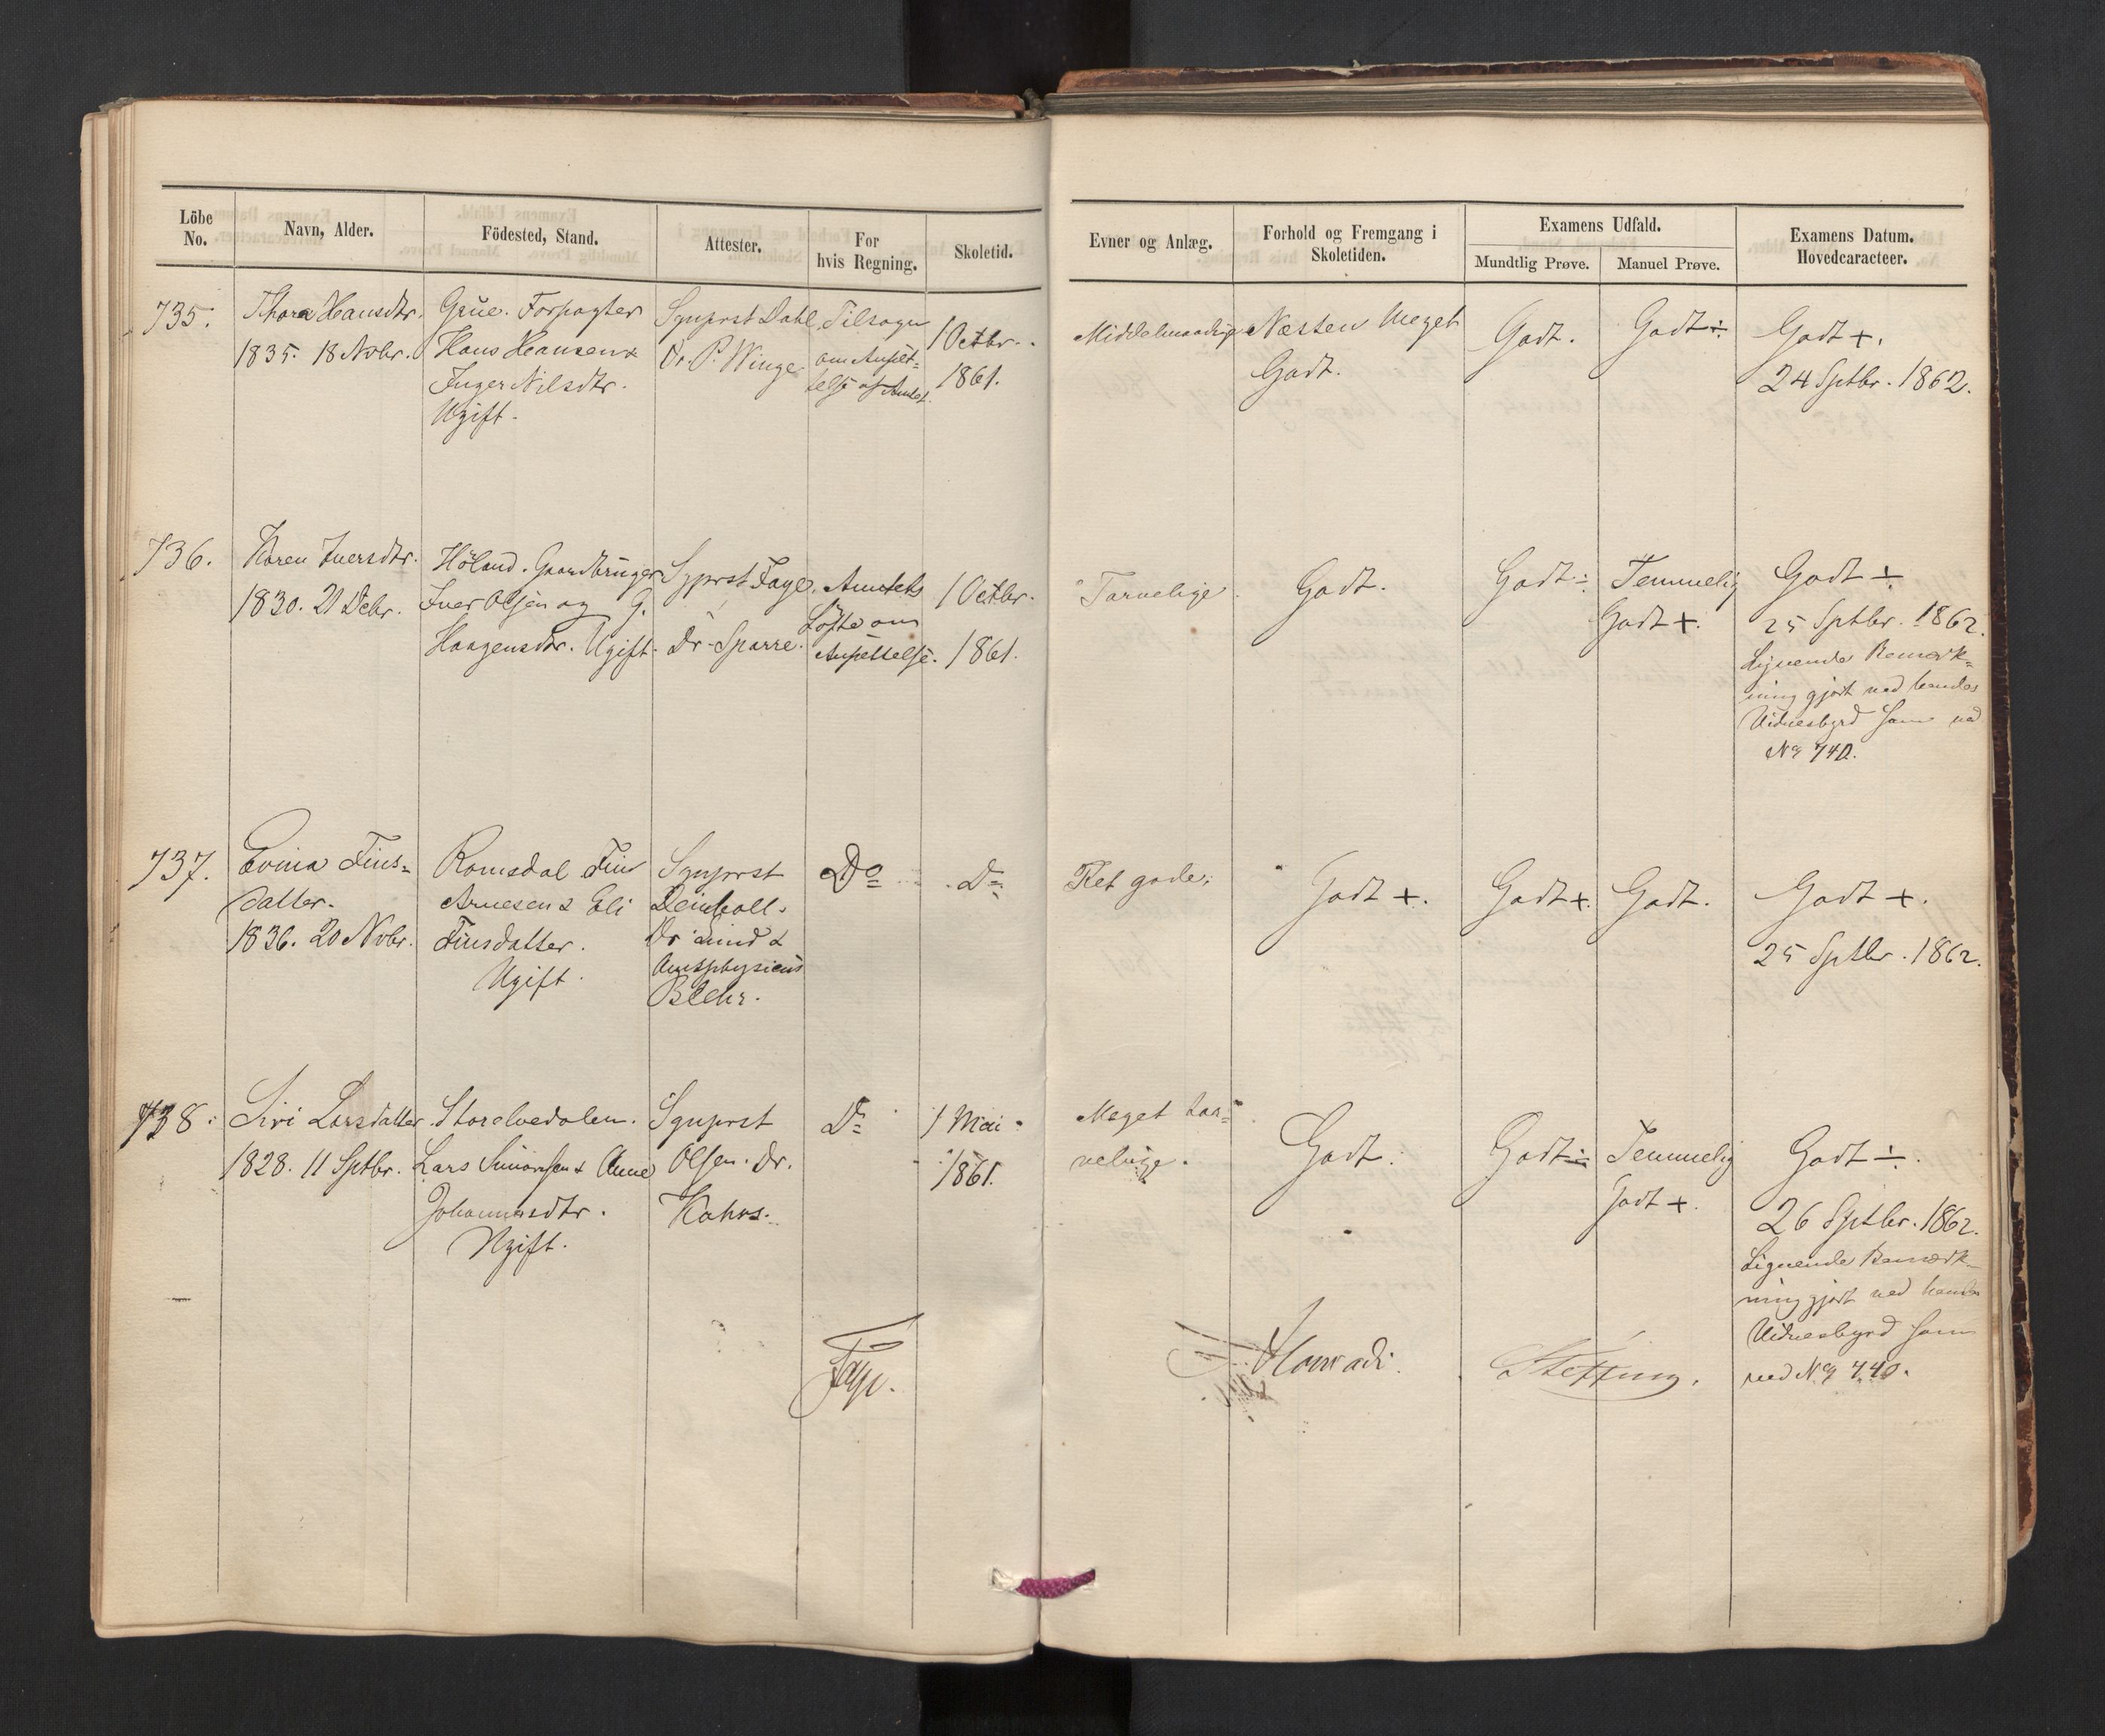 Löbe No.
Navn, Alder.
Födested, Stand.
Attester.
For hvis Regning.
Skoletid.
Evner og Anlæg.
Forhold og Fremgang i Skoletiden.
Examens Udfald.
Mundtlig Prøve.
Manuel Prøve.
Examens Datum. Hovedcaracteer.
735.
Thora Hansdtr.
1835. 18 Novbr.
Grue. Forpagter
Hans Hansen &
Inger Nilsdtr.
Ugift.
Sgnprst Dahl,
Dr. P. Winge
Tilsagn
om Ansæt-
telse af Amtet.
1 Octbr.
1861.
Middelmaadige
Næsten Meget
Godt.
Godt.
Godt ÷
Godt +.
24 Sptbr. 1862.
736.
Karen Iversdtr.
1830. 21 Debr.
Höland. Gaardbruger
Iver Olsen og G.
Haagensdtr. Ugift.
Sgprst Faye.
Dr. Sparre.
Amtets
Löfte om
Ansættelse.
1 Octbr.
1861.
Tarvelige.
Godt.
Godt ÷
Temmelig
Godt +.
Godt ÷
25 Sptbr. 1862.
Lignende Bemærk=
ning gjort ved hendes
Vidnesbyrd som ved
No 740.
737.
Fins=
datter.
1836. 20 Novbr.
Romsdal Fin
Arnesen & Eli
Finsdatter.
Ugift.
Sgnprst
Deinboll.
Dr. &
Amtsphysicus
Blehr.
Do
Do
Ret gode.
Godt +.
Godt +.
Godt.
Godt +.
25 Sptbr. 1862.
738.
Siri Larsdatter
1828. 11 Sptbr.
Storelvedalen.
Lars Simonsen & Anne
Johannesdtr.
Ugift.
Sgnprst
Olsen. Dr.
Kahrs.
Do
1 Mai
1861.
Meget tar=
velige.
Godt.
Godt ÷
Temmelig
Godt +.
Godt ÷.
26 Sptbr. 1862.
Lignende Bemærk=
ning gjort ved hendes
Vidnesbyrd som
ved No 740.
Faye.
Konradi.
Steffens.